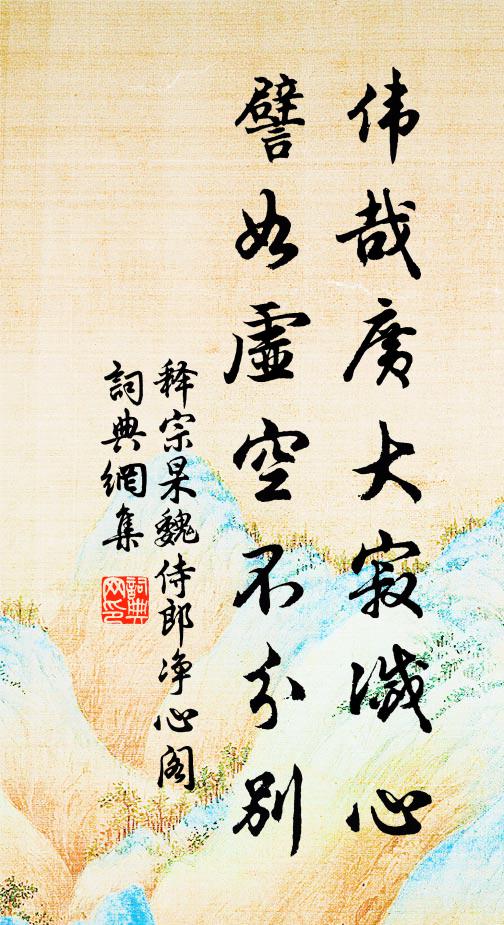 伟哉廣大寂滅心
譬如虛空不分别
释宗杲魏侍郎净心阁
詞典網集
詞典
网印